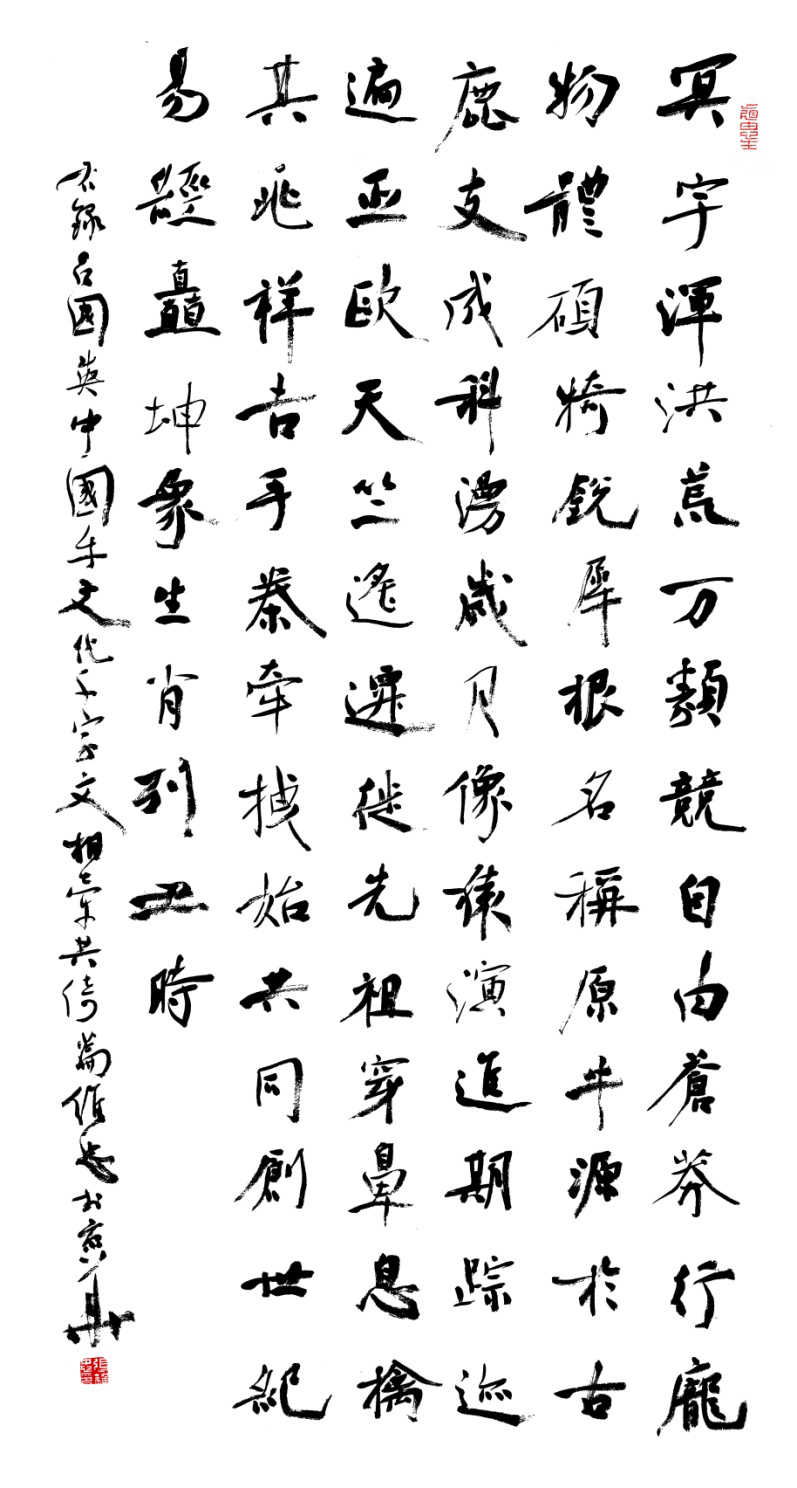 冥宇渾洪荒万類競自由蒼莽行龐
物體碩犄銳犀根名稱原牛源於古
鹿支成科湧歲月像猿演進期踪巡
遍亚歐天竺遙遷徙先祖穿鼻息擒
其兆祥吉手豢牽拽始共同創世紀
易經矗坤象生肖列丑時
右錄吕國英中國牛文化千字文相牽共倚篇維忠於京華